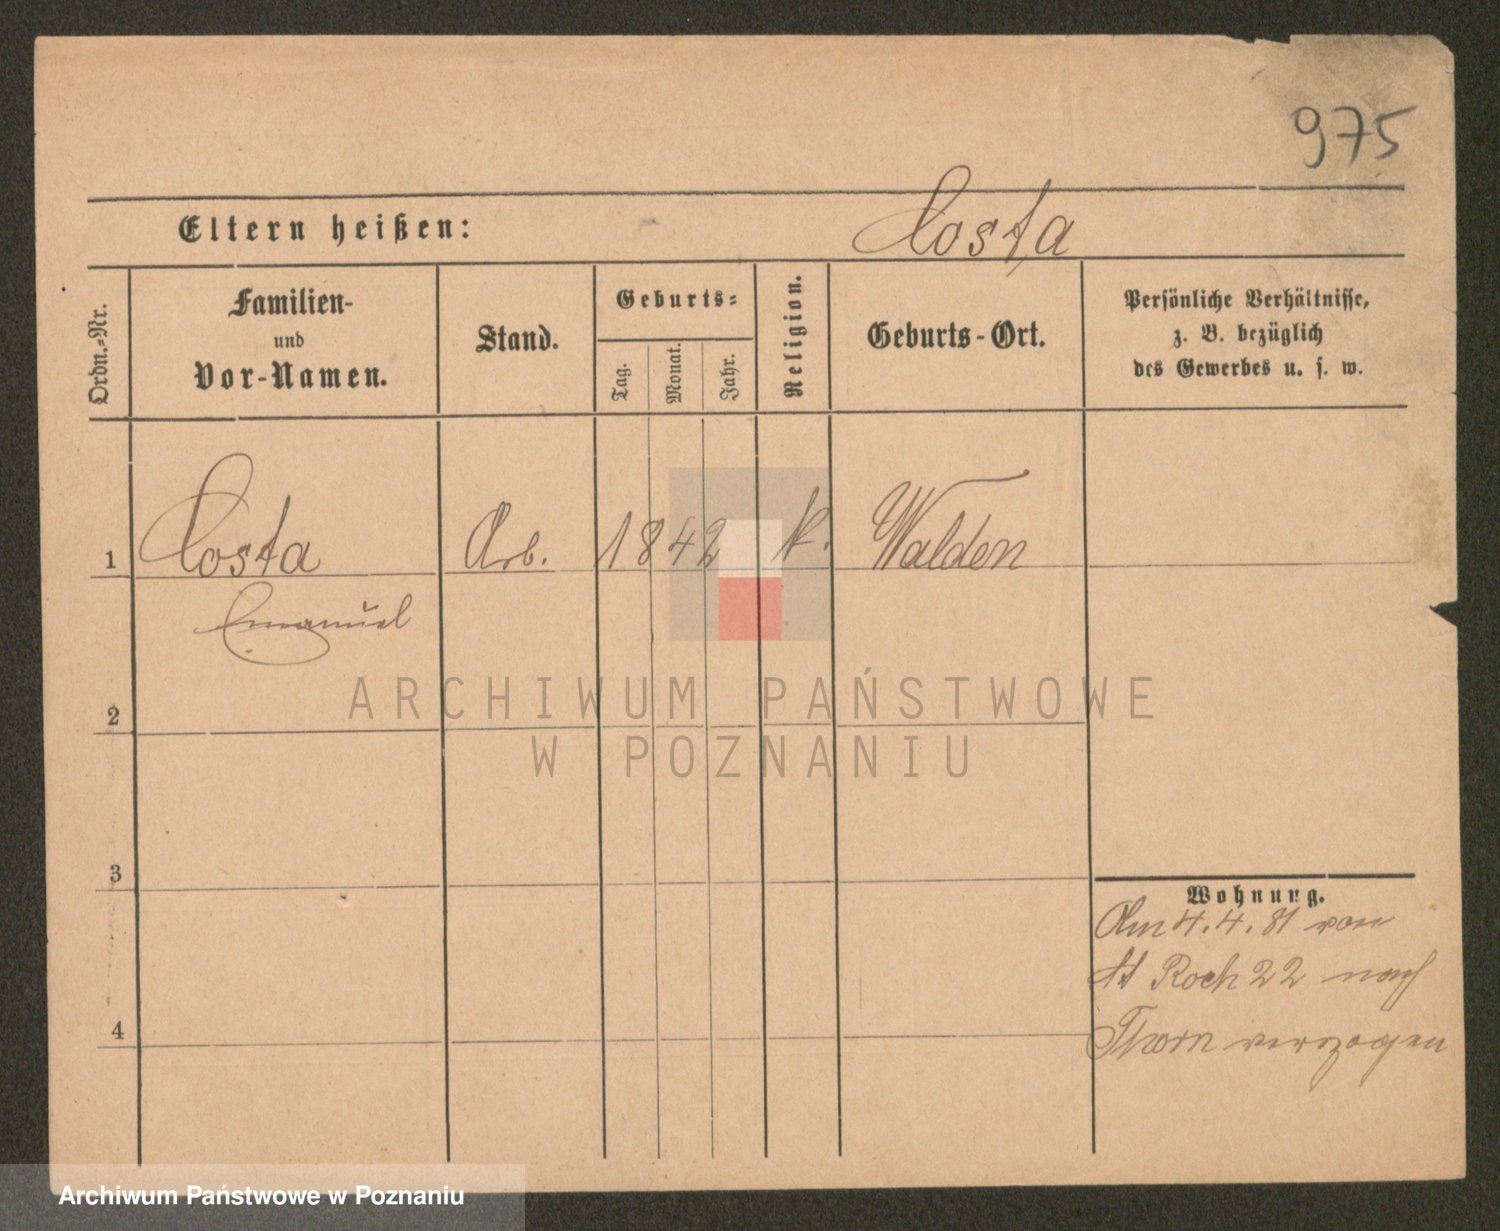 975
Eltern heißen: Costa
Ordn.-Nr.
Familien-
und
Vor-Namen.
Stand.
Geburts-
Tag.
Monat.
Jahr.
Religion.
Geburts-Ort.
Persönliche Verhältnisse,
z. B. bezüglich
des Gewerbes u. s. w.
1 Costa Arb. 1842 k. Walden
Emanuel
2
3
4
Wohnung.
Am 4.4.81 von
St Roch 22 nach
Thorn verzogen
ARCHIWUM PAŃSTWOWE
W POZNANIU
Archiwum Państwowe w Poznaniu